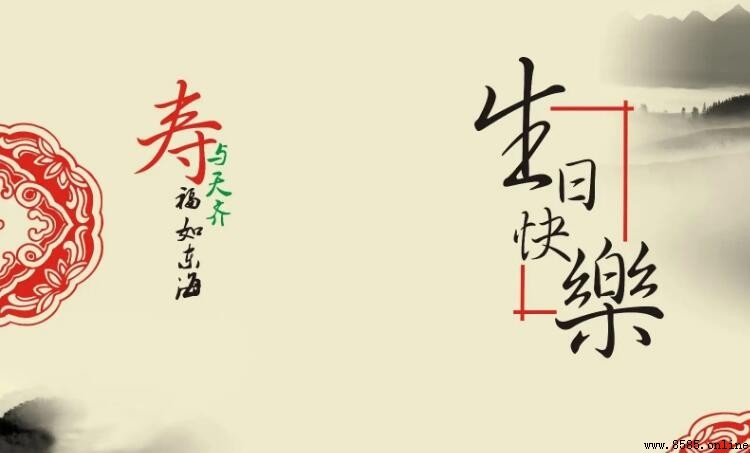 寿与天齐
福如东海
生日快樂
www.8585.online